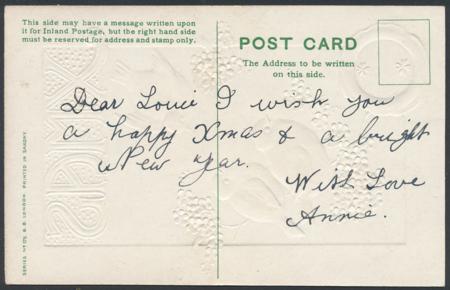 This side may have a message written upon
it for Inland Postage, but the right hand side
must be reserved for address and stamp only.
POST CARD
The Address to be written
on this side.
Dear Louie I wish you
a happy Xmas & a bright
New Year.
With Love
Annie.
PRINTED IN SAXONY.